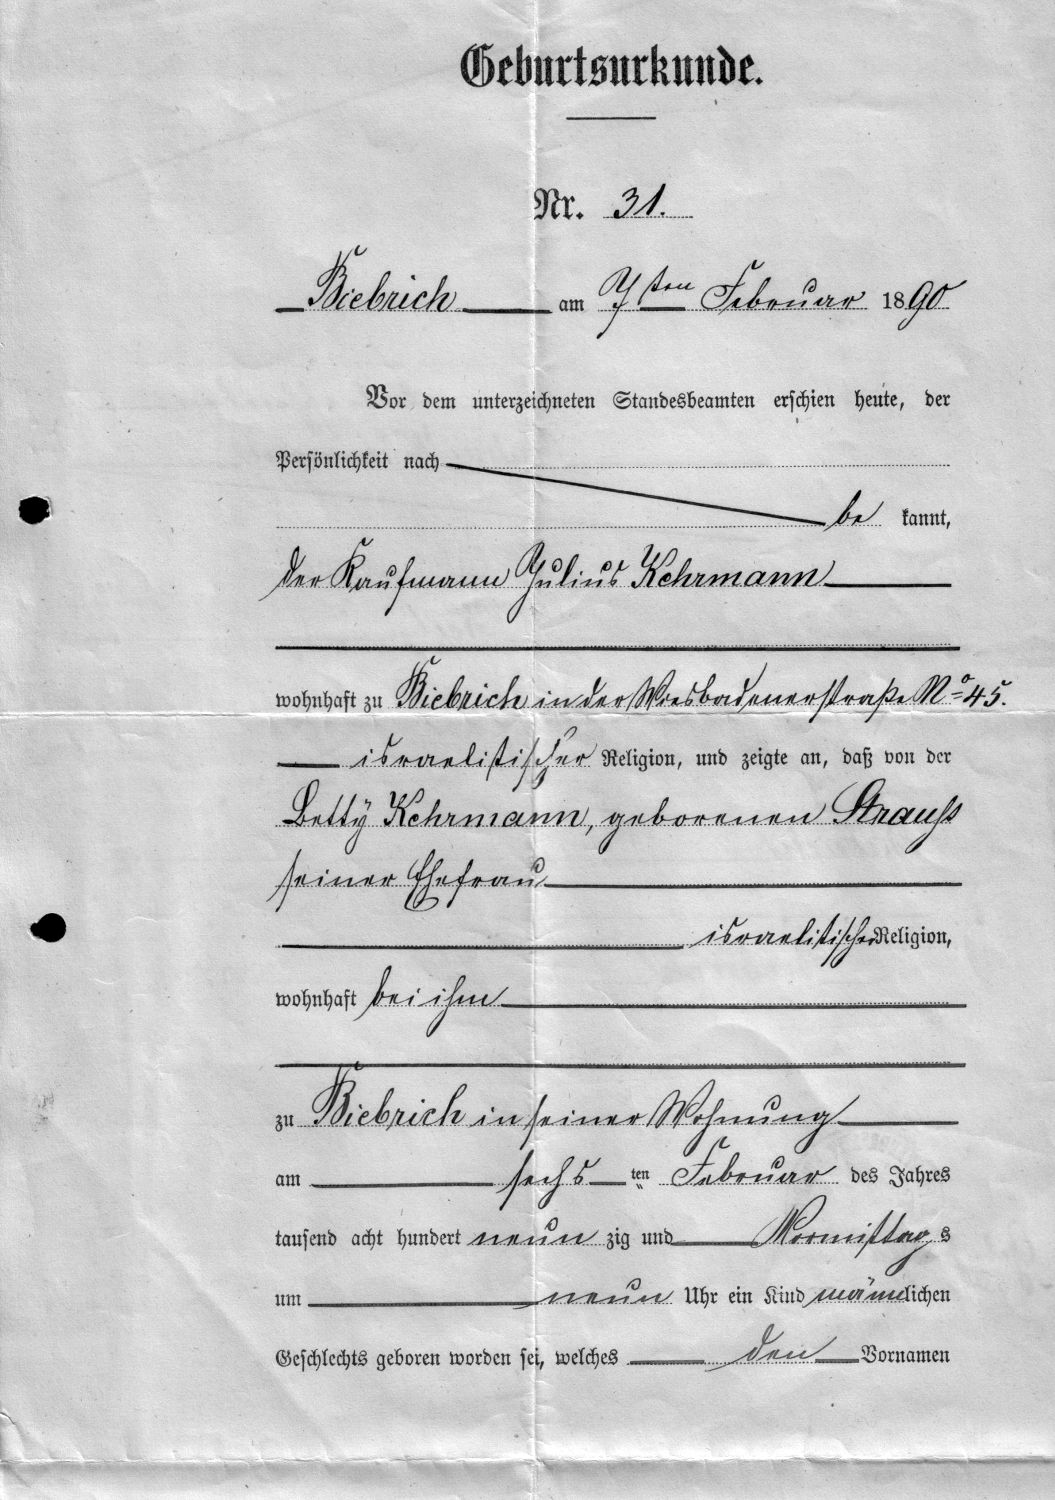 Geburtsurkunde.
Nr. 31.
Biebrich am 7ten Februar 1890
Vor dem unterzeichneten Standesbeamten erschien heute, der
Persönlichkeit nach
be kannt,
der Kaufmann Julius Kehrmann
wohnhaft zu Biebrich in der Wiesbadenerstraße No 45.
israelitischer Religion, und zeigte an, daß von der
Betty Kehrmann, geborenen Strauß
seiner Ehefrau
israelitischer Religion,
wohnhaft bei ihm
zu Biebrich in seiner Wohnung
am sechs ten Februar des Jahres
tausend acht hundert neun zig und Vormittag s
um neun Uhr ein Kind männlichen
Geschlechts geboren worden sei, welches den Vornamen